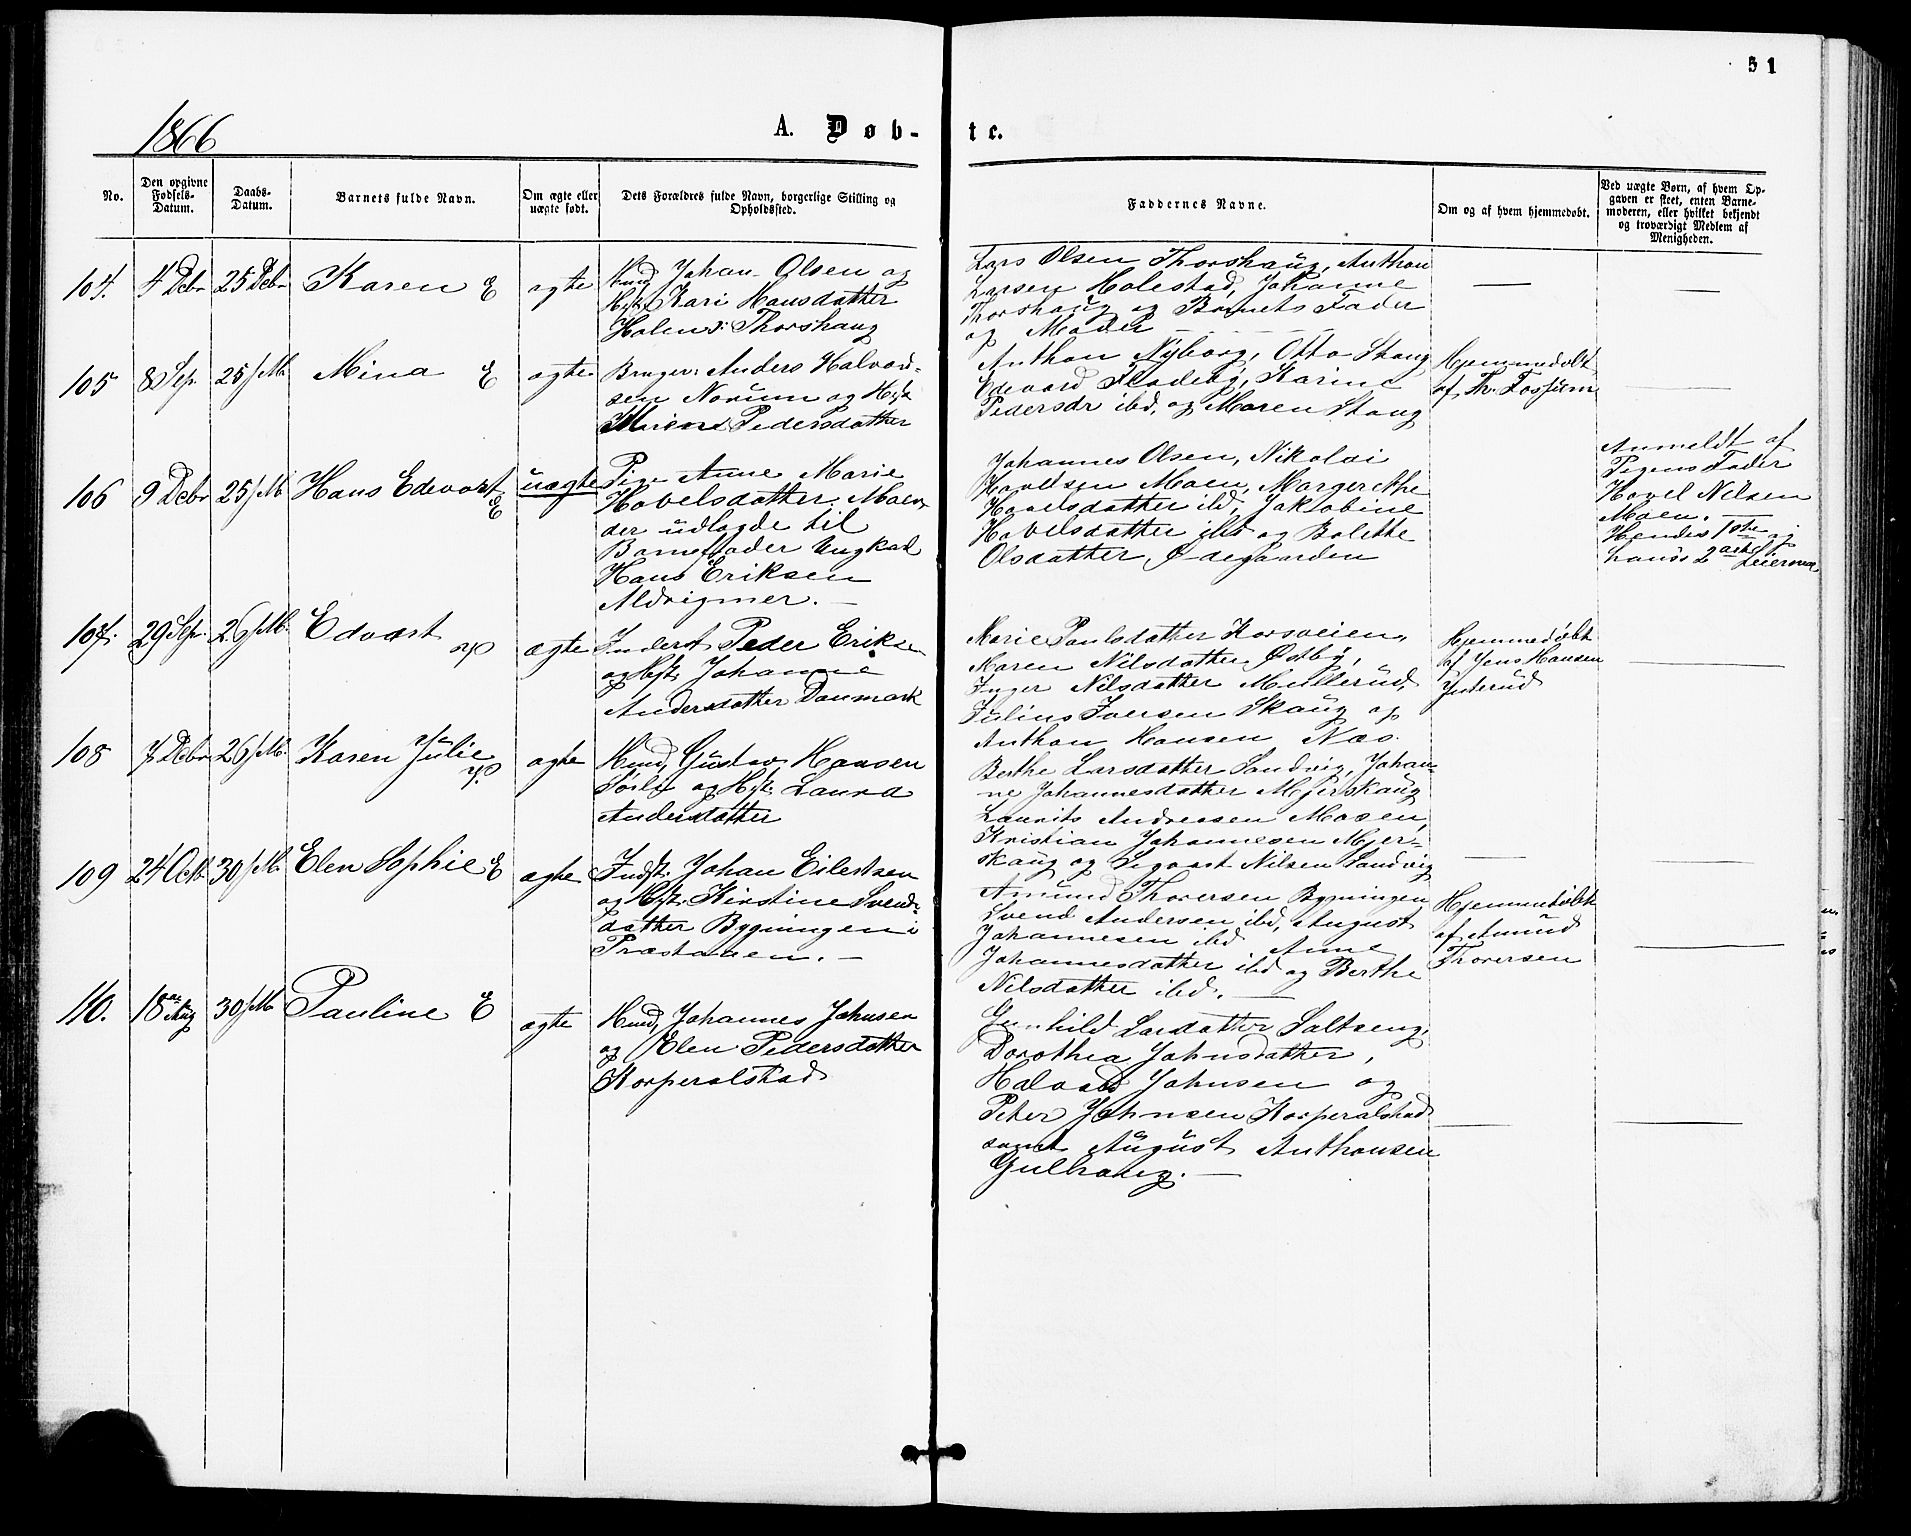 51
1866
A. Døb-
te.
No.
Den opgivne Fødsels-Datum.
Daabs-Datum.
Barnets fulde Navn.
Om ægte eller uægte født.
Dets Forældres fulde Navn, borgerlige Stilling og Opholdssted.
Faddernes Navne.
Om og af hvem hjemmedøbt.
Ved uægte Børn, af hvem Opgaven er skeet, enten Barnemoderen, eller hvilket bekjendt og troværdigt Medlem af Menigheden.
104. 4 Debr 25 Debr Karen E ægte
Hmd Johan Olsen og
Hst. Kari Hansdatter
Thorshaug
Lars Olsen Thorshaug, Anthon
Larsen Holestad, Johanne
Thorshaug og Barnets Fader
og Moder
105 8 Sep. 25/M. Mina E ægte
Bruger: Anders Halvord-
sen Norum og Hst.
Pedersdatter
Anthon Nyborg, Otto Stang
Edevard Fladeby, Karine
Pedersdr ibd, og Maren Stang
Hjemmedøbt
af Th. Fossum
106 9 Debr 25/M Hans Edevart E uægte
Pige Anne Marie
Hovelsdatter Moen,
der udlagde til
Barnefader Ungkarl
Hans Eriksen
Johannes Olsen, Nikolai
Hovelsen Moen, Margrethe
Hovelsdatter ibd, Jakobine
Hovelsdatter ibd og Bolette
Olsdatter Ødegaarden
Anmeldt af
Pigens Fader
Hovel Nilsen
Moen. —
Hendes 1ste og
hans 2det Leiermaal
107. 29 Sep. 26/M. Edvart ægte
Inderst Peder Eriksen
og Hst. Johanne
Andersdatter Danmark
Marie Paulsdatter Korsveien,
Maren Nilsdatter Østby,
Inger Nilsdatter Mullerud,
Julius Iversen Skaug og
Anthon Hansen Næs.
Hjemmedøbt
af Jens Hansen
108 7 Debr 26/M. Karen Julie ægte
Hmd, Gustav Hansen
Sørli og Hst. Laura
Andersdatter
Berthe Larsdatter Sandvig, Johan-
ne Johannesdatter Mjerskaug
Laurits Andreasen Mosen,
Kristian Johannesen Mjer-
skaug og Sigvart Nilsen Sandvig
109 24 Octb 30/M. Elen Sophie E ægte
Indst. Johan Eilertsen
og Hst. Kirstine Svends-
datter Bygningen i
Amund Thoresen Bygningen
Svend Andersen ibd, August
Johannesen ibd Anne
Johannesdatter ibd og Berthe
Nilsdatter ibd. —
Hjemmedøbt
af Amund
Thoresen
110. 18 Aug 30/M Pauline E ægte
Hmd, Johannes Johnsen
og Elen Pedersdatter
Korperalstad
Gunhild Larsdatter Saltseng,
Dorothea Johnsdatter,
Halvard Johnsen og
Peter Johnsen Korperalstad
samt August Anthonsen
Gulhaug. —